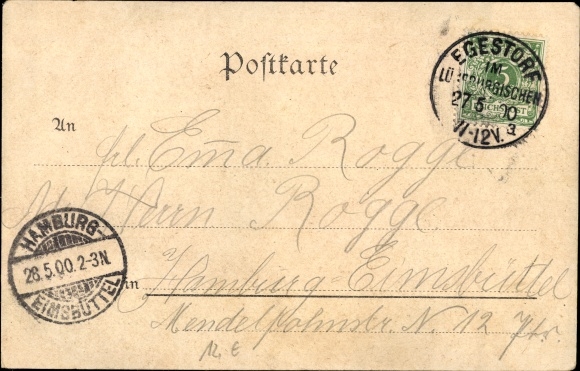 Postkarte
EGESTORF
IM
LÜNEBURGISCHEN
27 5 00
11-12V.
5
An
Frl. Emma Rogge
Herrn Rogge
HAMBURG-
28.5.00.2-3N.
EIMSBÜTTEL
in Hamburg Eimsbüttel
Mendelssohnstr. N 12